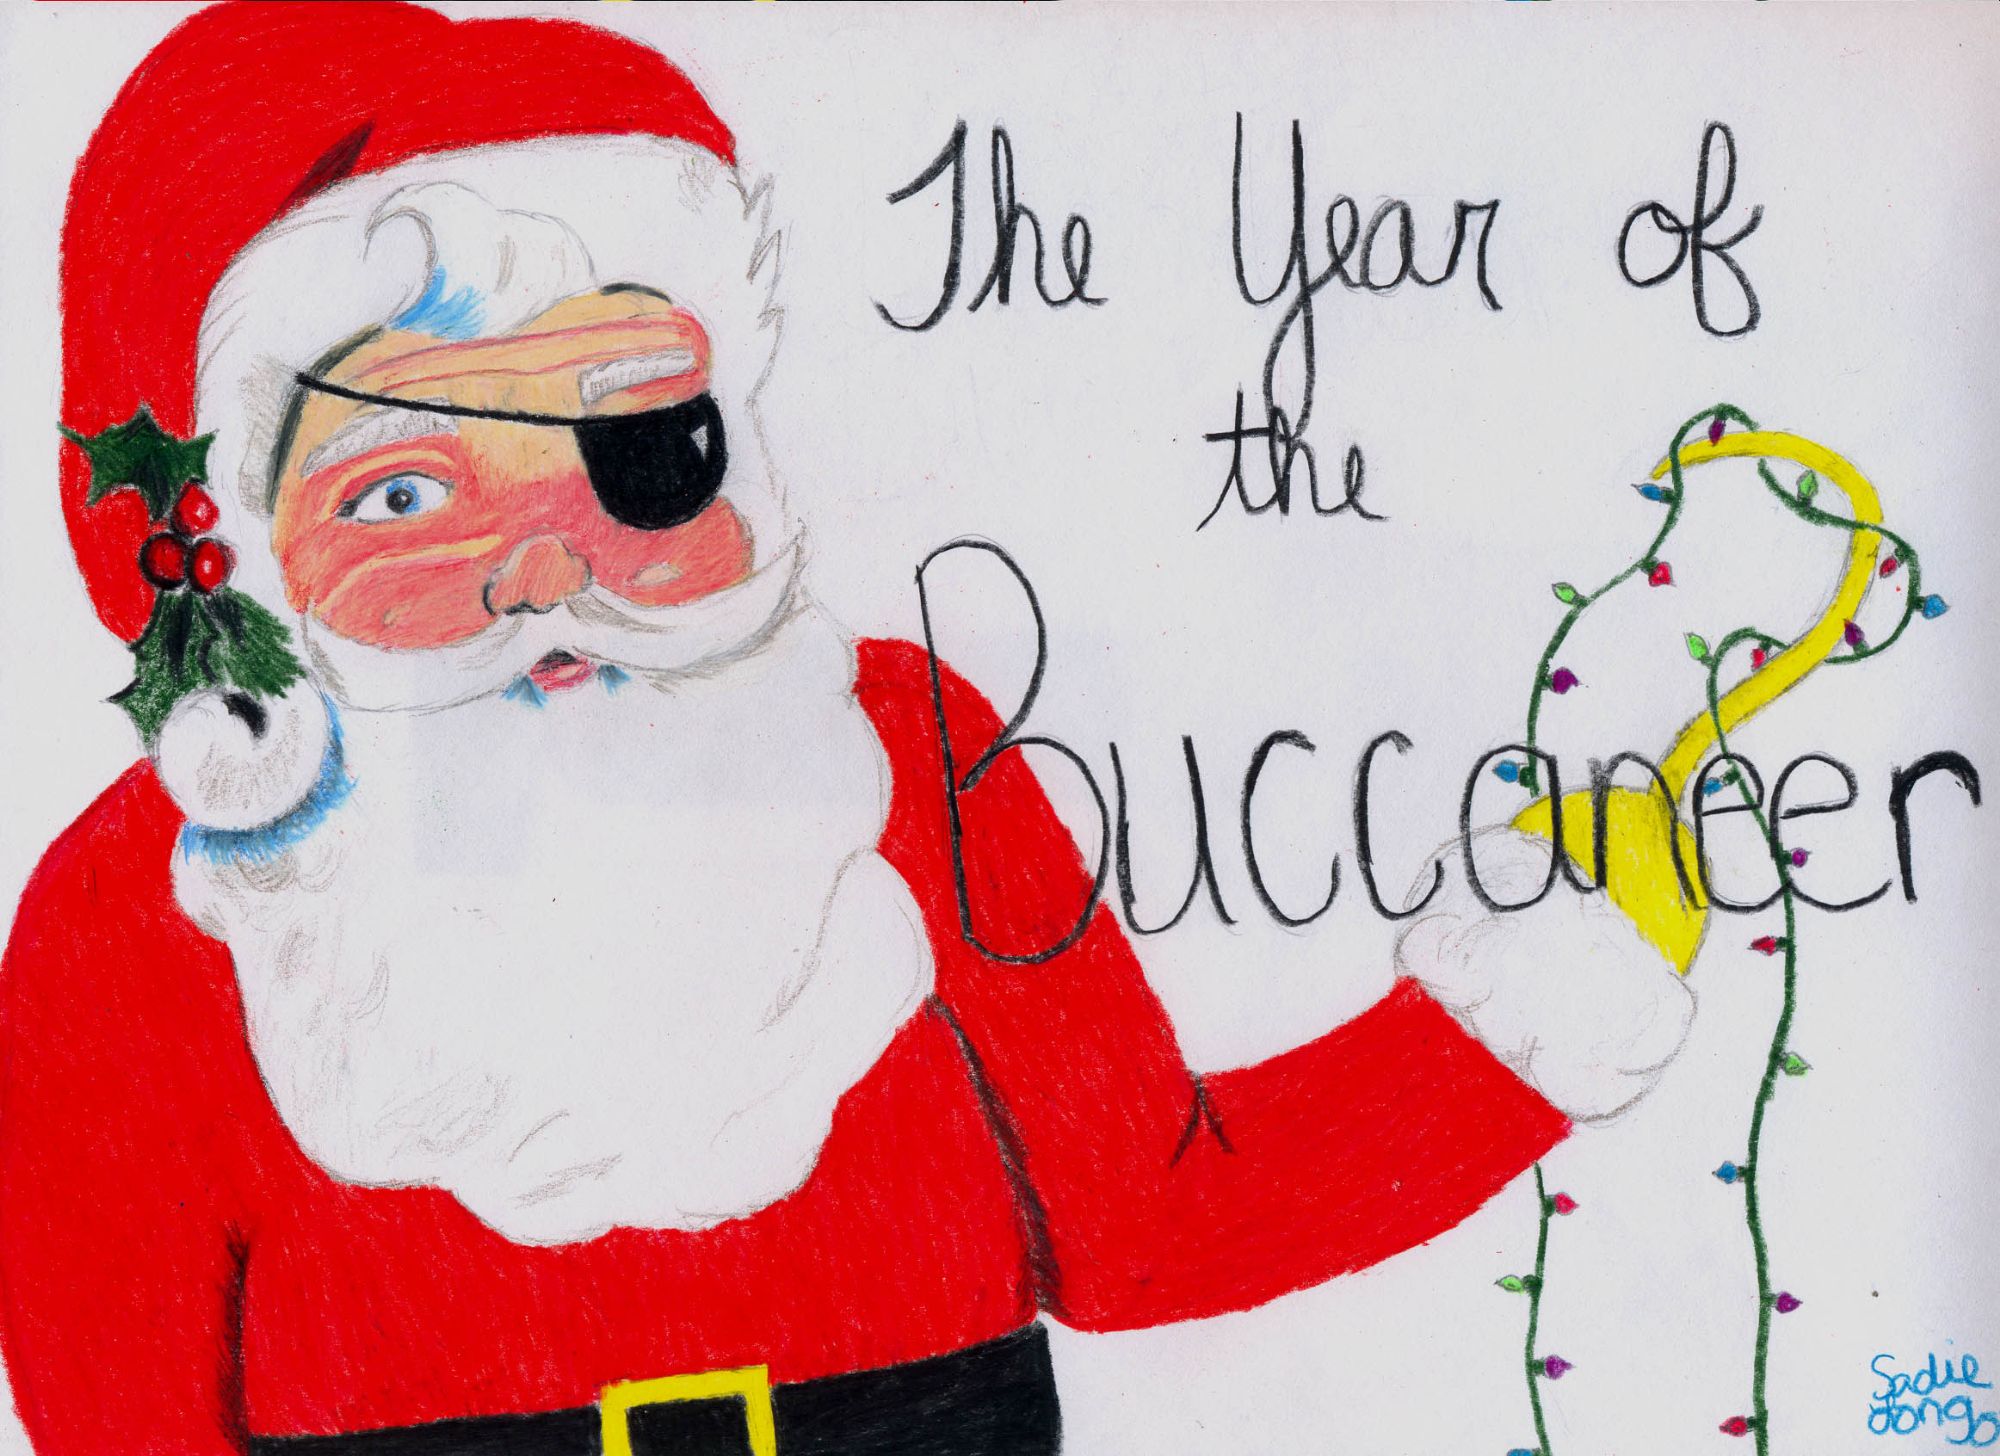 The Year of
the
Buccaneer
Sadie
Longo